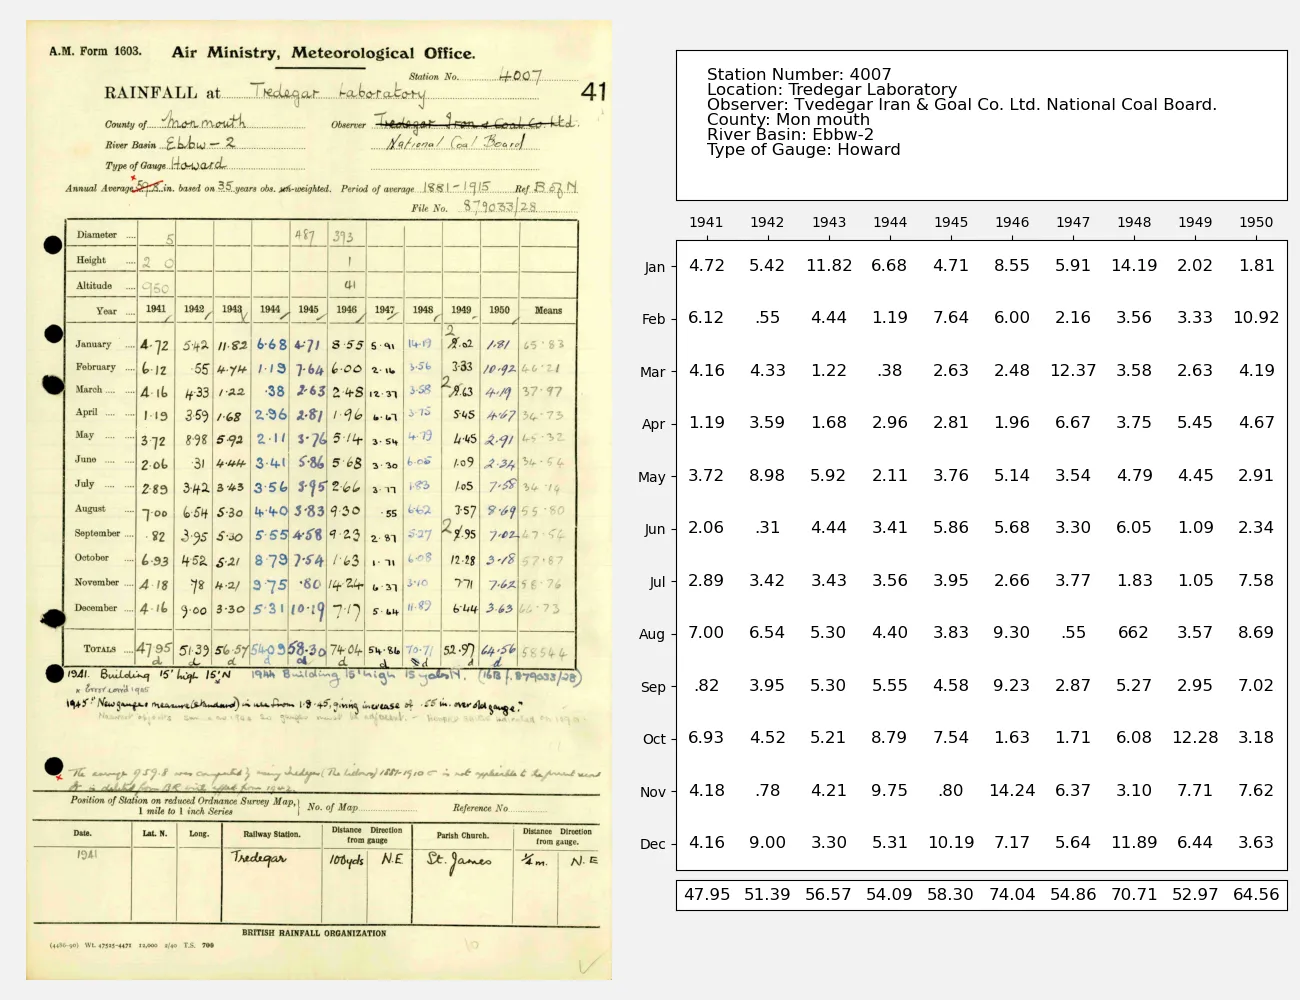 A.M. Form 1603. Air Ministry, Meteorological Office.
Station No. 4007
RAINFALL at Tredegar Laboratory 41
County of Monmouth Observer Tredegar Iron & Coal Co. Ltd.
River Basin Ebbw - 2 National Coal Board
Type of Gauge Howard
Annual Average 59.8 in. based on 35 years obs. un-weighted. Period of average 1881-1915 Ref B of N
File No. 879033/28
Diameter .... 5 487 393
Height .... 2 0 1
Altitude .... 950 41
Year .... 1941 1942 1943 1944 1945 1946 1947 1948 1949 1950 Means
January .... 4.72 5.42 11.82 6.68 4.71 8.55 5.91 14.19 2.02 1.81 65.83
February .... 6.12 .55 4.74 1.19 7.64 6.00 2.16 3.56 3.33 10.92 46.21
March .... .... 4.16 4.33 1.22 .38 2.63 2.48 12.37 3.58 2.63 4.19 37.97
April .... .... 1.19 3.59 1.68 2.96 2.81 1.96 6.67 3.75 5.45 4.67 34.73
May .... .... 3.72 8.98 5.92 2.11 3.76 5.14 3.54 4.79 4.45 2.91 45.32
June .... .... 2.06 .31 4.44 3.41 5.86 5.68 3.30 6.05 1.09 2.34 34.54
July .... .... 2.89 3.42 3.43 3.56 3.95 2.66 3.77 1.83 1.05 7.58 34.14
August .... 7.00 6.54 5.30 4.40 3.83 9.30 .55 6.62 3.57 8.69 55.80
September .... .82 3.95 5.30 5.55 4.58 9.23 2.87 5.27 2.95 7.02 47.54
October .... 6.93 4.52 5.21 8.79 7.54 1.63 1.71 6.08 12.28 3.18 57.87
November .... 4.18 78 4.21 9.75 .80 14.24 6.37 3.10 7.71 7.62 58.76
December .... 4.16 9.00 3.30 5.31 10.19 7.17 5.64 11.89 6.44 3.63 66.73
TOTALS .... 47.95 51.39 56.57 54.09 58.30 74.04 54.86 70.71 52.97 64.56 585.44
1941. Building 15' high 15' N 1944 Building 15' high 15 yds N. (16B/.879033/28)
1945 "New gauge measure (standard) in use from 1.9.45, giving increase of .55 in. over old gauge."
The average of 59.8 was computed by using Tredegar (The Libraries) 1881-1910 is not applicable to the present
Position of Station on reduced Ordnance Survey Map, 1 mile to 1 inch Series No. of Map Reference No
Date. Lat. N. Long. Railway Station. Distance Direction from gauge Parish Church. Distance Direction from gauge.
1941 Tredegar 100yds N.E St. James ¼ m. N.E
BRITISH RAINFALL ORGANIZATION
(4486-90) Wt. 47525-4471 12,000 2/40 T.S. 700
10
Station Number: 4007
Location: Tredegar Laboratory
Observer: Tvedegar Iran & Goal Co. Ltd. National Coal Board.
County: Mon mouth
River Basin: Ebbw-2
Type of Gauge: Howard
1941 1942 1943 1944 1945 1946 1947 1948 1949 1950
Jan 4.72 5.42 11.82 6.68 4.71 8.55 5.91 14.19 2.02 1.81
Feb 6.12 .55 4.44 1.19 7.64 6.00 2.16 3.56 3.33 10.92
Mar 4.16 4.33 1.22 .38 2.63 2.48 12.37 3.58 2.63 4.19
Apr 1.19 3.59 1.68 2.96 2.81 1.96 6.67 3.75 5.45 4.67
May 3.72 8.98 5.92 2.11 3.76 5.14 3.54 4.79 4.45 2.91
Jun 2.06 .31 4.44 3.41 5.86 5.68 3.30 6.05 1.09 2.34
Jul 2.89 3.42 3.43 3.56 3.95 2.66 3.77 1.83 1.05 7.58
Aug 7.00 6.54 5.30 4.40 3.83 9.30 .55 662 3.57 8.69
Sep .82 3.95 5.30 5.55 4.58 9.23 2.87 5.27 2.95 7.02
Oct 6.93 4.52 5.21 8.79 7.54 1.63 1.71 6.08 12.28 3.18
Nov 4.18 .78 4.21 9.75 .80 14.24 6.37 3.10 7.71 7.62
Dec 4.16 9.00 3.30 5.31 10.19 7.17 5.64 11.89 6.44 3.63
47.95 51.39 56.57 54.09 58.30 74.04 54.86 70.71 52.97 64.56